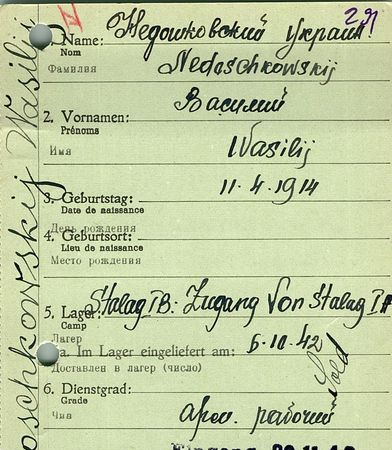 29
V
1. Name: Недошковский украин
Nom
Фамилия Nedoschkowskij
Василий
2. Vornamen:
Prénoms
Имя Wasilij
11.4.1914
3. Geburtstag:
Date de naissance
День рождения
4. Geburtsort:
Lieu de naissance
Место рождения
5. Lager: Stalag IB: Zugang von Stalag IA
Camp
Лагер
a. Im Lager eingeliefert am: 6.10.42
Доставлен в лагер (число)
Sold
6. Dienstgrad:
Grade
Чин рабочий
oschkowskij Wasilij